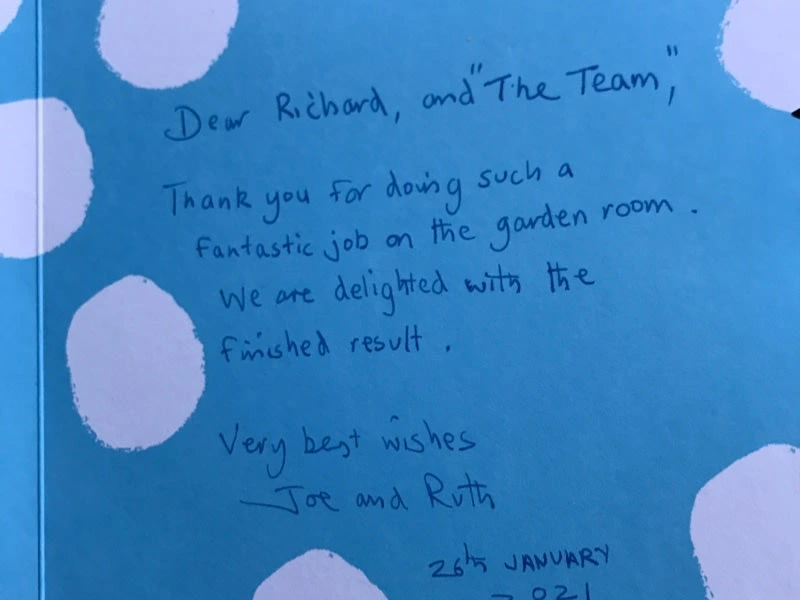 Dear Richard, and "The Team,"
Thank you for doing such a
fantastic job on the garden room.
We are delighted with the
finished result.
Very best wishes
Joe and Ruth
26th JANUARY
2021